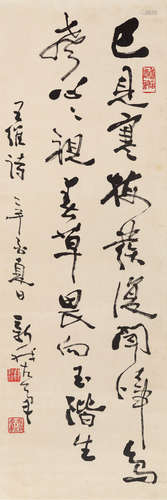 已見寒梅發復聞啼鳥
聲心心視春草畏向玉階生
王維詩 辛酉夏日 新我左筆